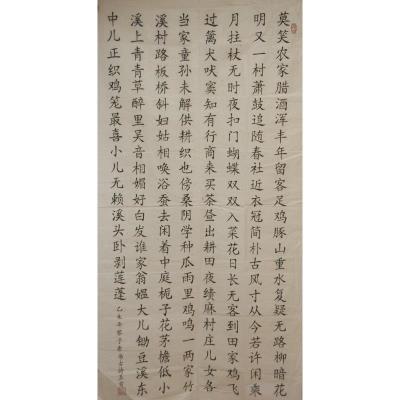 莫笑农家腊酒浑丰年留客足鸡豚山重水复疑无路柳暗花
明又一村萧鼓追随春社近衣冠简朴古风寸从今若许闲乘
月拄杖无时夜扣门蝴蝶双双入菜花日长无客到田家鸡飞
过篱犬吠窦知有行商来买茶昼出耕田夜绩麻村庄儿女各
当家童孙未解供耕织也傍桑阴学种瓜雨里鸡鸣一两家竹
溪村路板桥斜妇姑相唤浴蚕去闲着中庭栀子花茅檐低小
溪上青青草醉里吴音相媚好白发谁家翁媪大儿锄豆溪东
中儿正织鸡笼最喜小儿无赖溪头卧剥莲蓬
乙未年